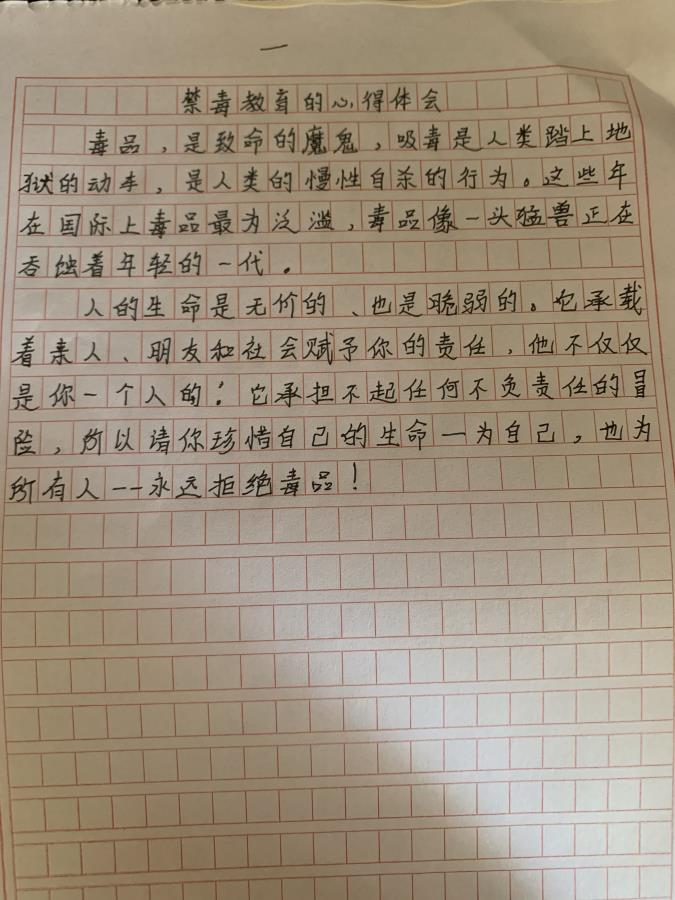 一
禁毒教育的心得体会
毒品，是致命的魔鬼，吸毒是人类踏上地
狱的动车，是人类的慢性自杀的行为。这些年
在国际上毒品最为泛滥，毒品像一头猛兽正在
吞蚀着年轻的一代。
人的生命是无价的、也是脆弱的。它承载
着亲人、朋友和社会赋予你的责任，他不仅仅
是你一个人的；它承担不起任何不负责任的冒
险，所以请你珍惜自己的生命一为自己，也为
所有人--永远拒绝毒品！